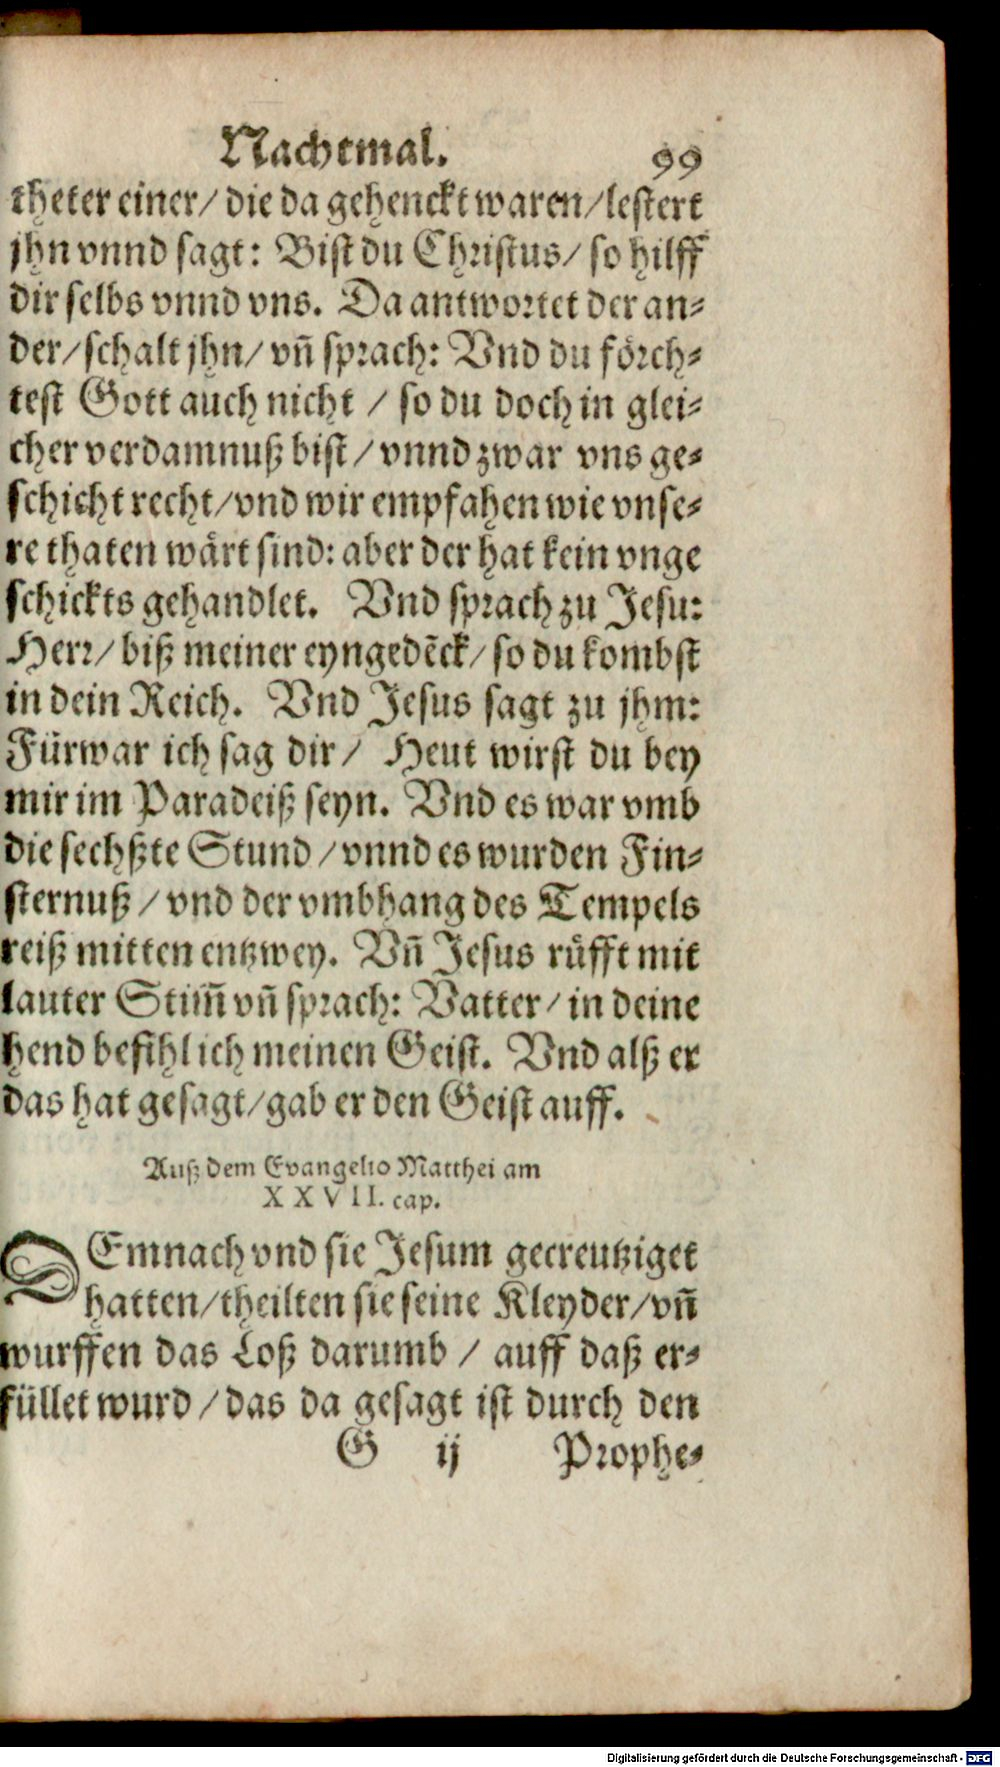 Nachtmal. 99
theter einer/ die da gehenckt waren/lestert
jhn vnnd sagt: Bist du Christus/ so hilff
dir selbs vnnd vns. Da antwortet der an⸗
der/schalt jhn/ vñ sprach: Vnd du förch⸗
test Gott auch nicht / so du doch in glei⸗
cher verdamnuß bist/ vnnd zwar vns ge⸗
schicht recht/vnd wir empfahen wie vnse⸗
re thaten wärt sind: aber der hat kein vnge
schickts gehandlet. Vnd sprach zu Jesu:
Herr/ biß meiner eyngedẽck/ so du kombst
in dein Reich. Vnd Jesus sagt zu jhm:
Fürwar ich sag dir/ Heut wirst du bey
mir im Paradeiß seyn. Vnd es war vmb
die sechßte Stund /vnnd es wurden Fin⸗
sternuß / vnd der vmbhang des Tempels
reiß mitten entzwey. Vñ Jesus rüfft mit
lauter Stim̃ vñ sprach: Vatter/ in deine
hend befihl ich meinen Geist. Vnd alß er
das hat gesagt/gab er den Geist auff.
Auß dem Evangelio Matthei am
XXVII. cap.
DEmnach vnd sie Jesum gecreutziget
hatten/theilten sie seine Kleyder/vñ
wurffen das Loß darumb / auff daß er⸗
füllet wurd /das da gesagt ist durch den
G ij Prophe⸗
Digitalisierung gefördert durch die Deutsche Forschungsgemeinschaft - DFG